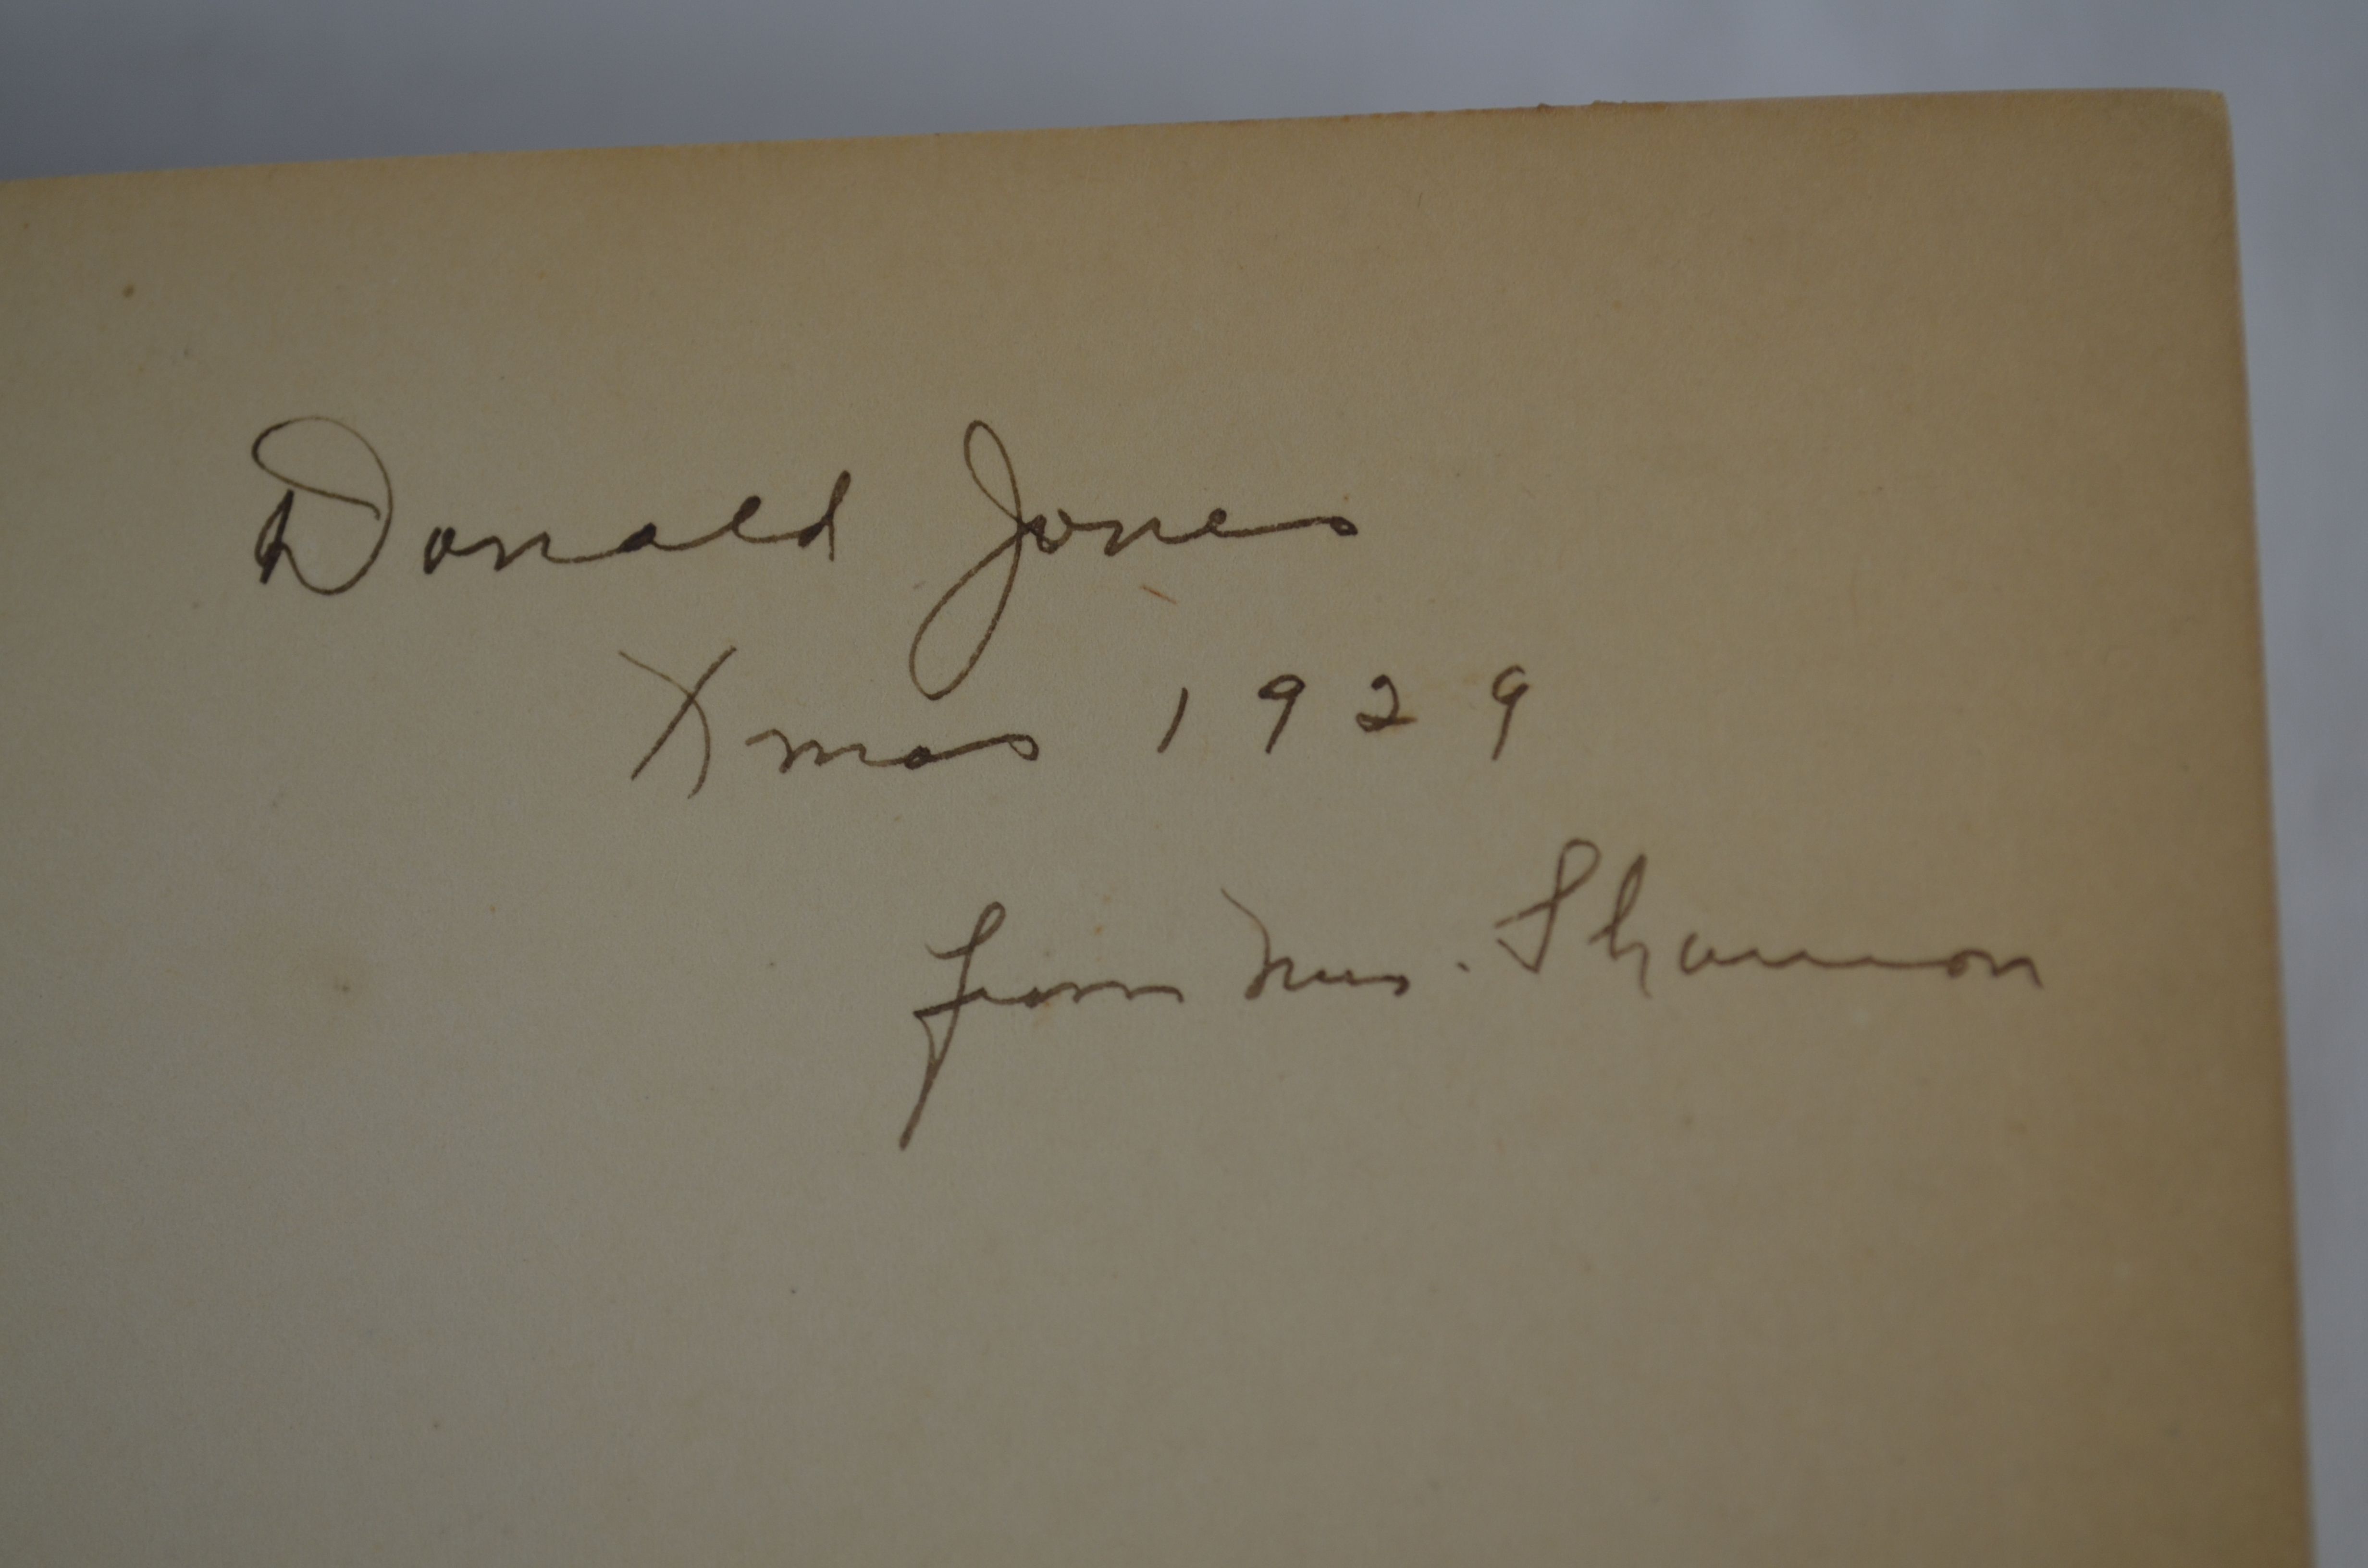 Donald Jones
Xmas 1929
from Mrs. Shannon